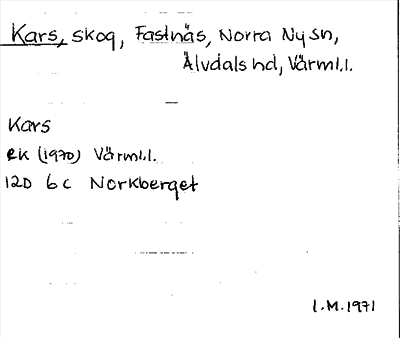 Kars, skog, Fastnäs, Norra Ny sn,
Älvdals hd, Värml.l.
Kars
EK (1970) Värml.l.
12D 6c Norkberget
I.M.1971